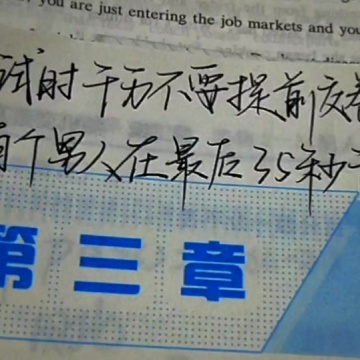 you are just entering the job markets and you
试时千万不要提前交卷
有个男人在最后35秒
第三章